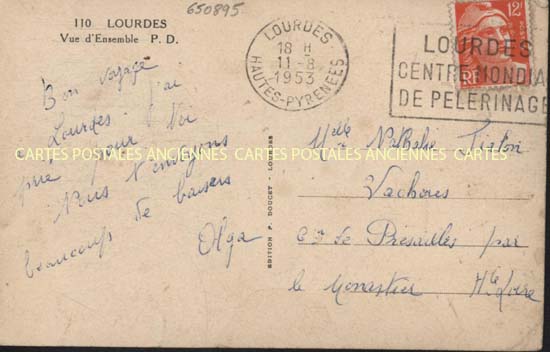 650895
110 LOURDES
Vue d'Ensemble P. D.
LOURDES
18 H
11 - 8
1953
HAUTES-PYRENÉES
12F
RF
LOURDES
CENTRE MONDIA
DE PELERINAGE
Bon voyage
j'ai
Lourdes
prié pour toi
Nous t'envoyons
beaucoup de baisers
Olga
EDITION P. DOUCET - LOURDES
Melle Nathalie
Vachères
Cne de Présailles par
le Monastier Hte Loire
CARTES POSTALES ANCIENNES CARTES POSTALES ANCIENNES CARTES